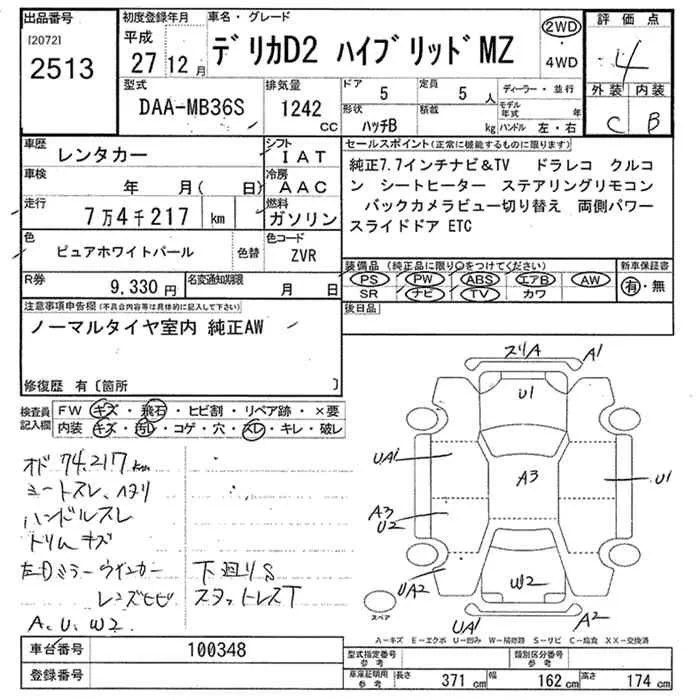 出品番号 初度登録年月 車名・グレード 評価点
[2072] 平成 2WD
2513 27 12月 デリカD2 ハイブリッドMZ ・ 4
4WD
型式 排気量 ドア 定員 ディーラー・並行 外装 内装
DAA-MB36S 1242 cc 5 5人 モデル年式 年 C B
形状 ハッチB 積載 kg ハンドル 左・右
車歴 レンタカー シフト IAT セールスポイント(正常に機能するものに限ります)
車検 年 月( 日) 冷房 AAC 純正7.7インチナビ&TV ドラレコ クルコ
走行 7万4千217 km 燃料 ガソリン ン シートヒーター ステアリングリモコン
バックカメラビュー切り替え 両側パワー
色 ピュアホワイトパール 色替 色コード ZVR スライドドア ETC
R券 9,330円 名変通知期限 月 日 装備品(純正品に限り○をつけてください) 新車保証書
PS PW ABS エアB AW 有・無
SR ナビ TV カワ
注意事項申告欄(不具合内容等は具体的に記入して下さい) 後日品
ノーマルタイヤ室内 純正AW
修復歴 有〔箇所 〕
検査員記入欄 FW キズ・飛石・ヒビ割・リペア跡・×要
内装 キズ・汚レ・コゲ・穴・スレ・キレ・破レ
スリA A1
U1
オド 74,217km UA1 A3 U1
シートスレ、ヘタリ
ハンドルスレ A3
U2
トリムキズ
左Dミラーウインカー 下廻りS UA2 W2
レンズヒビ スタットレスT スペア
A、U、W2 UA1 A2
A-キズ E-エクボ U-凹み W-補修跡 S-サビ C-腐食 XX-交換済
車台番号 100348 型式指定番号 参考 類別区分番号 参考
登録番号 車庫証明用 参考 長さ 371 cm 幅 162 cm 高さ 174 cm